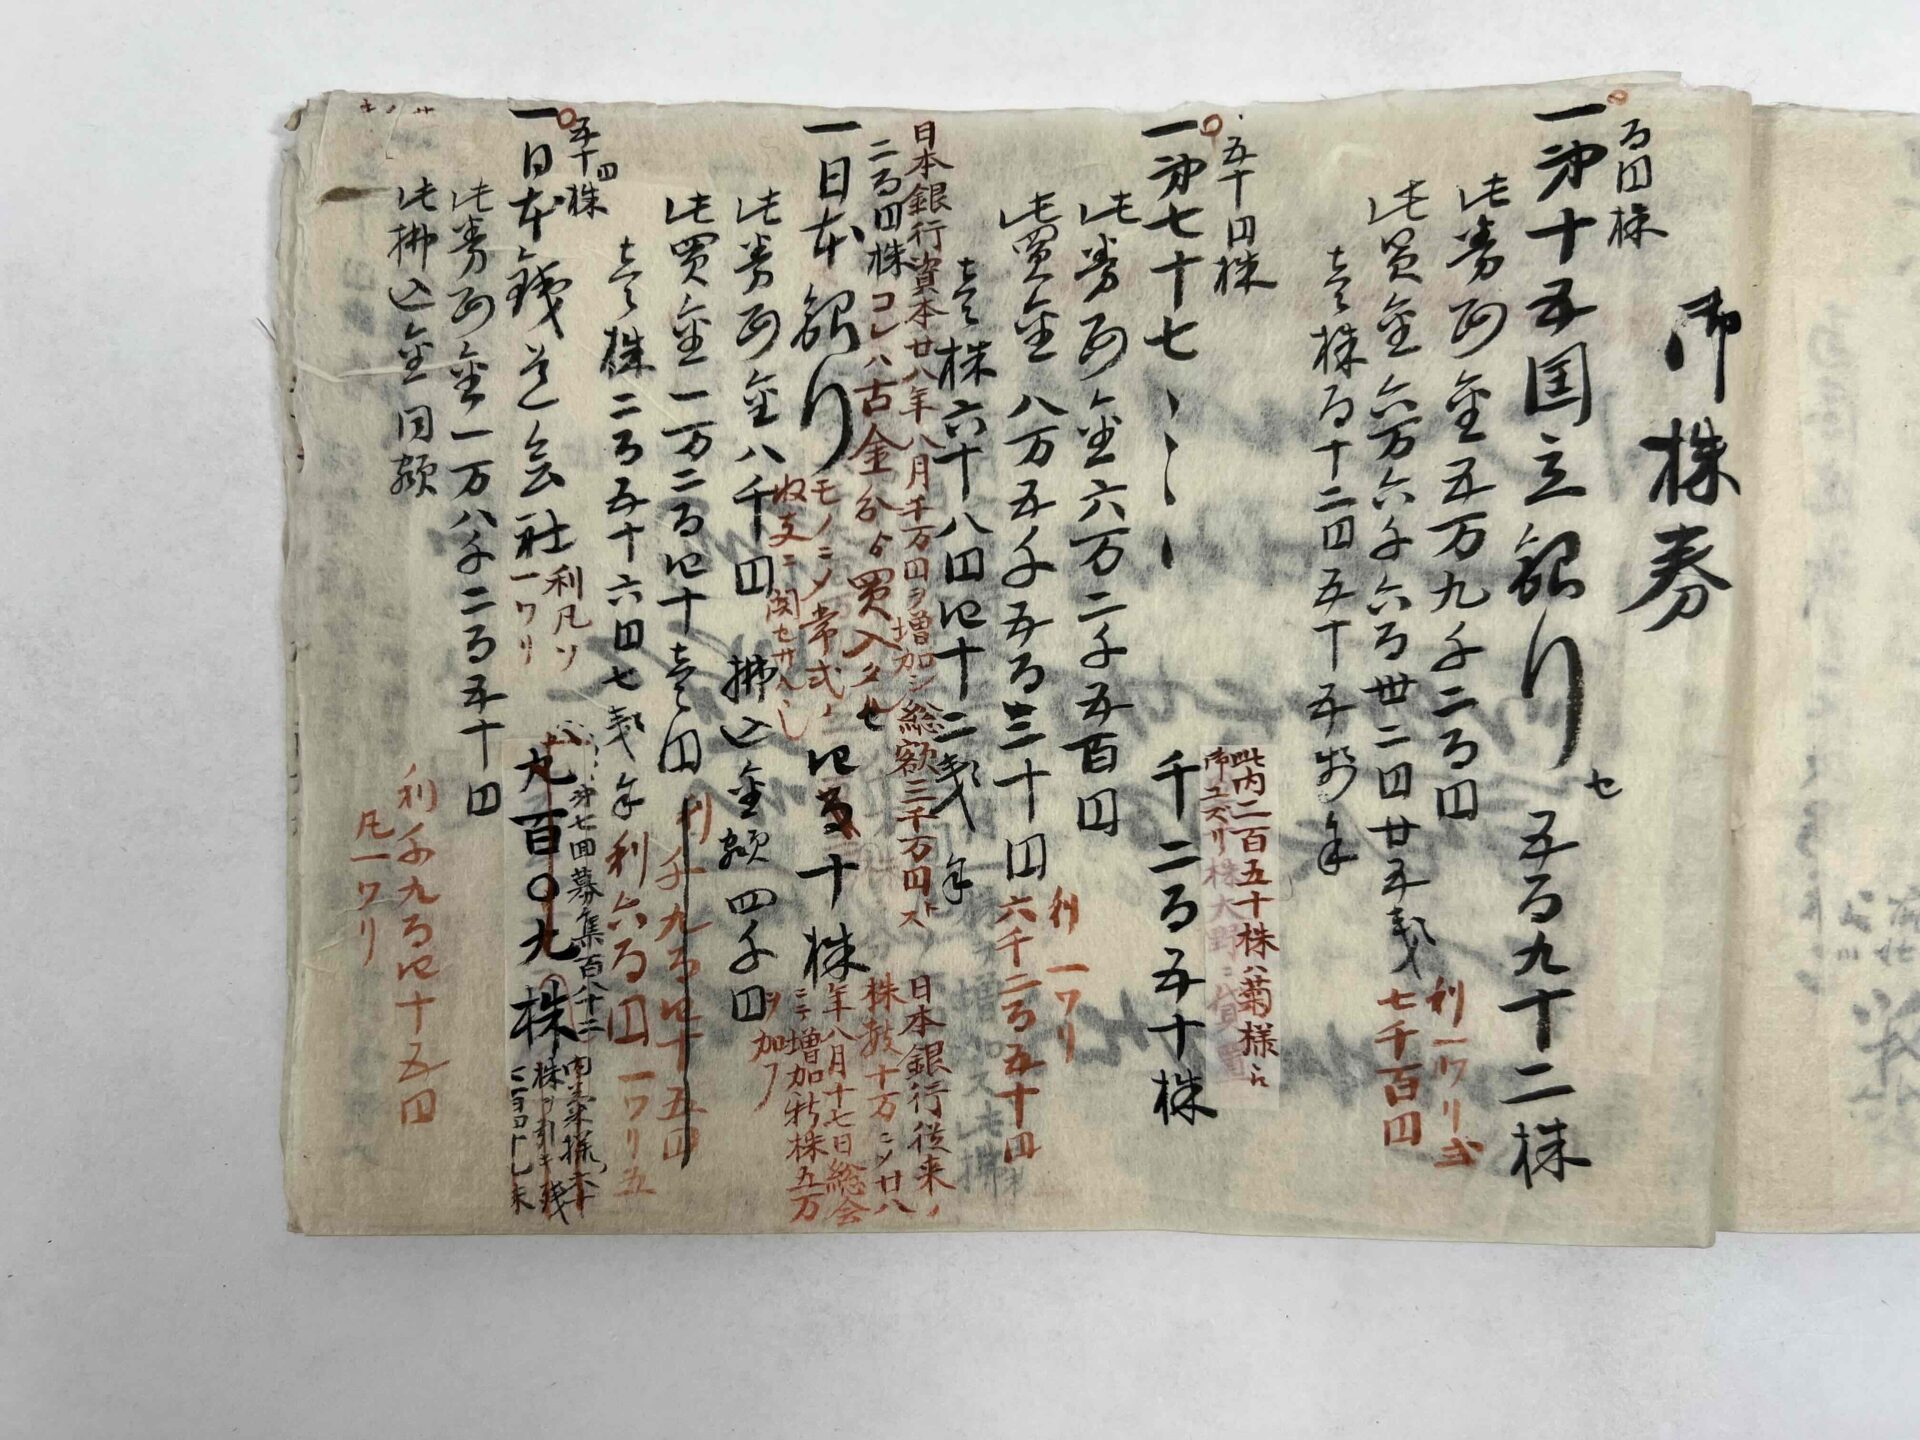 御株券
百円株
一第十五国立銀行 五百九十二株
此券面金五万九千二百円
此買金六万六千六百卅二円廿五銭
利一ワリ
七千百円
壱株百十二円五十五銭
五十円株
一第七十七〻〻〻 千二百五十株
此内二百五十株ハ菊様ニ
御ユズリ株大野ニ
此券面金六万二千五百円
利一ワリ
此買金八万五千五百三十円
六千二百五十円
壱株六十八円四十二銭
日本銀行資本廿八年八月千万円ヲ増加シ総額三千万円トス
二百円株
コレハ古金分ヨリ買入タル
モノニシテ常式ノ
収支ニ関セサルヘシ
一日本銀行 四十株
日本銀行従来ノ
株数十万ニシテ廿八
年八月十七日総会
ニテ増加新株五万
ヲ加フ
此券面金八千円 払込金額四千円
此買金一万二百四十壱円
利千九百四十五円
壱株二百五十六円七銭
利六百円一ワリ五
五十円株
一日本鉄道会社 九百〇九株
利凡ソ
一ワリ
第七回募集百八十二
此券面金一万八千二百五十円
此払込金同額
利千九百四十五円
凡一ワリ